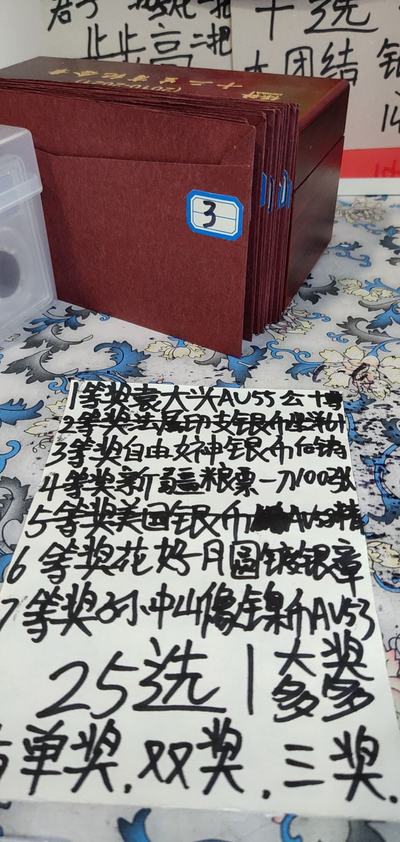 步步高 二把
十选
大团结 银
(2010-2021)
3
1等奖袁大头AU55公博
2等奖法属印支银币坐洋
3等奖自由女神银币
4等奖新疆粮票一刀100张
5等奖美国银币 AU53精
6等奖花好月圆镀银章
7等奖孙中山像镍币AU53
25选1大奖多多
单奖,双奖,三奖.